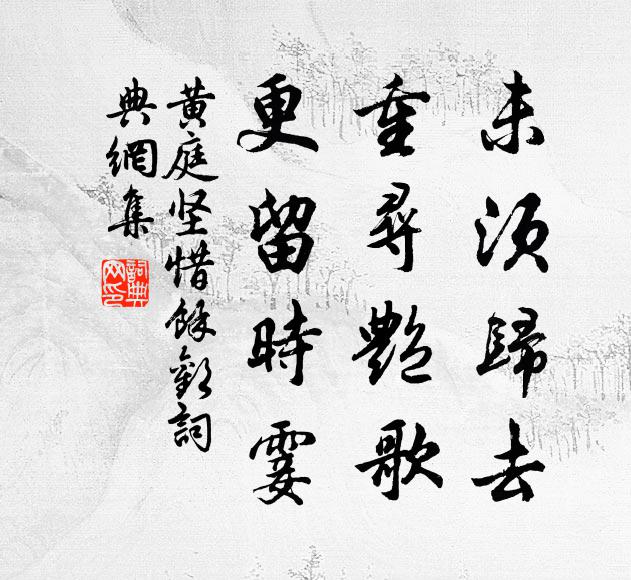 未須歸去
重尋艷歌
更留時霎
黄庭坚惜餘歡詞
典網集
詞典网印